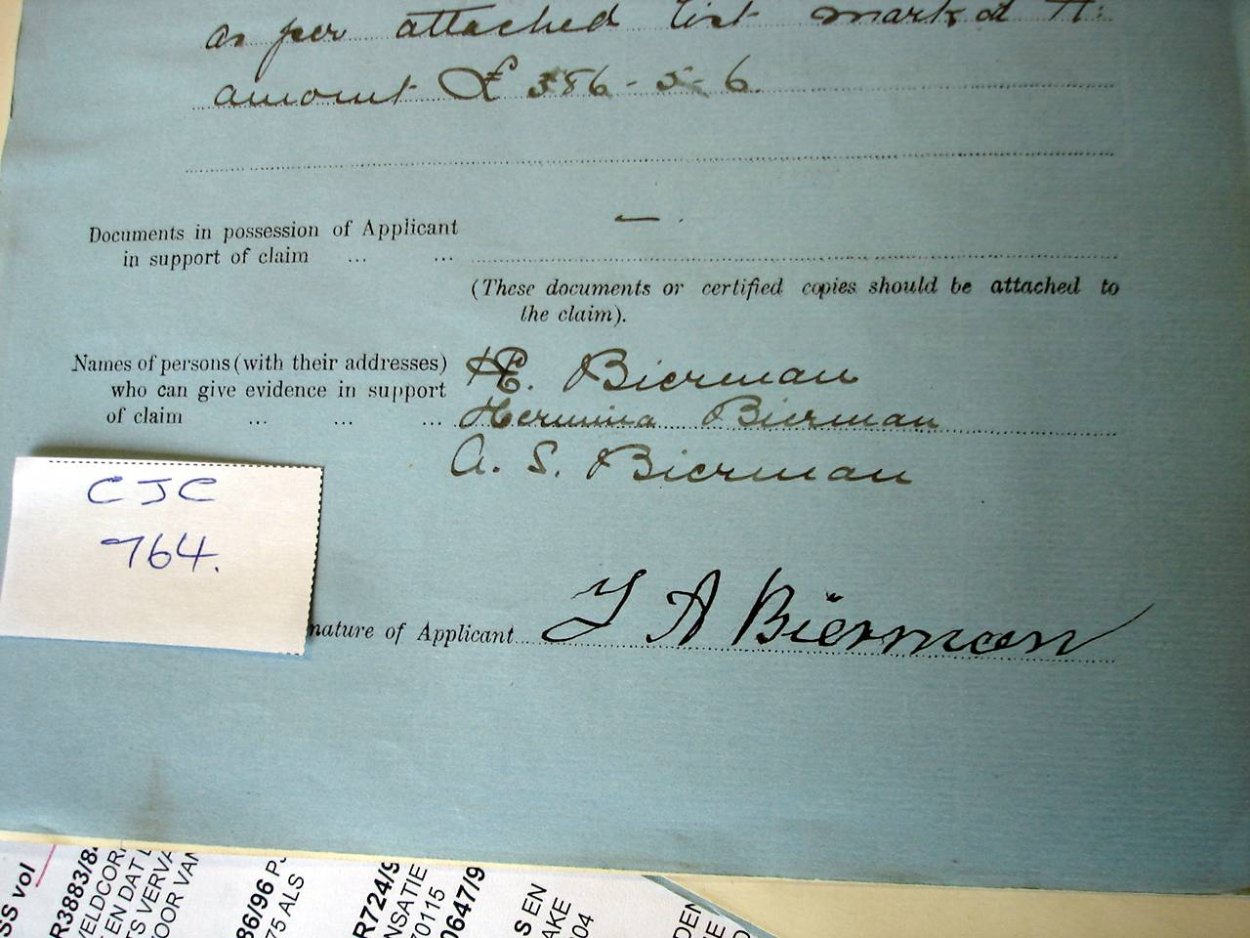 as per attached list marked A:
amount £ 386-5-6.
Documents in possession of Applicant
in support of claim ... ... —.
(These documents or certified copies should be attached to
the claim).
Names of persons (with their addresses)
who can give evidence in support
of claim ... ... ...
H. Bierman
Hermina Bierman
A. S. Bierman
CJC
764.
nature of Applicant
A Bierman
SS vol
R3883/8
VELDCOR
EN DAT
TS VERVA
OOR VAN
86/96
75 ALS
R724/9
NSATIE
70115
0647/9
S EN
AKE
04
DEN